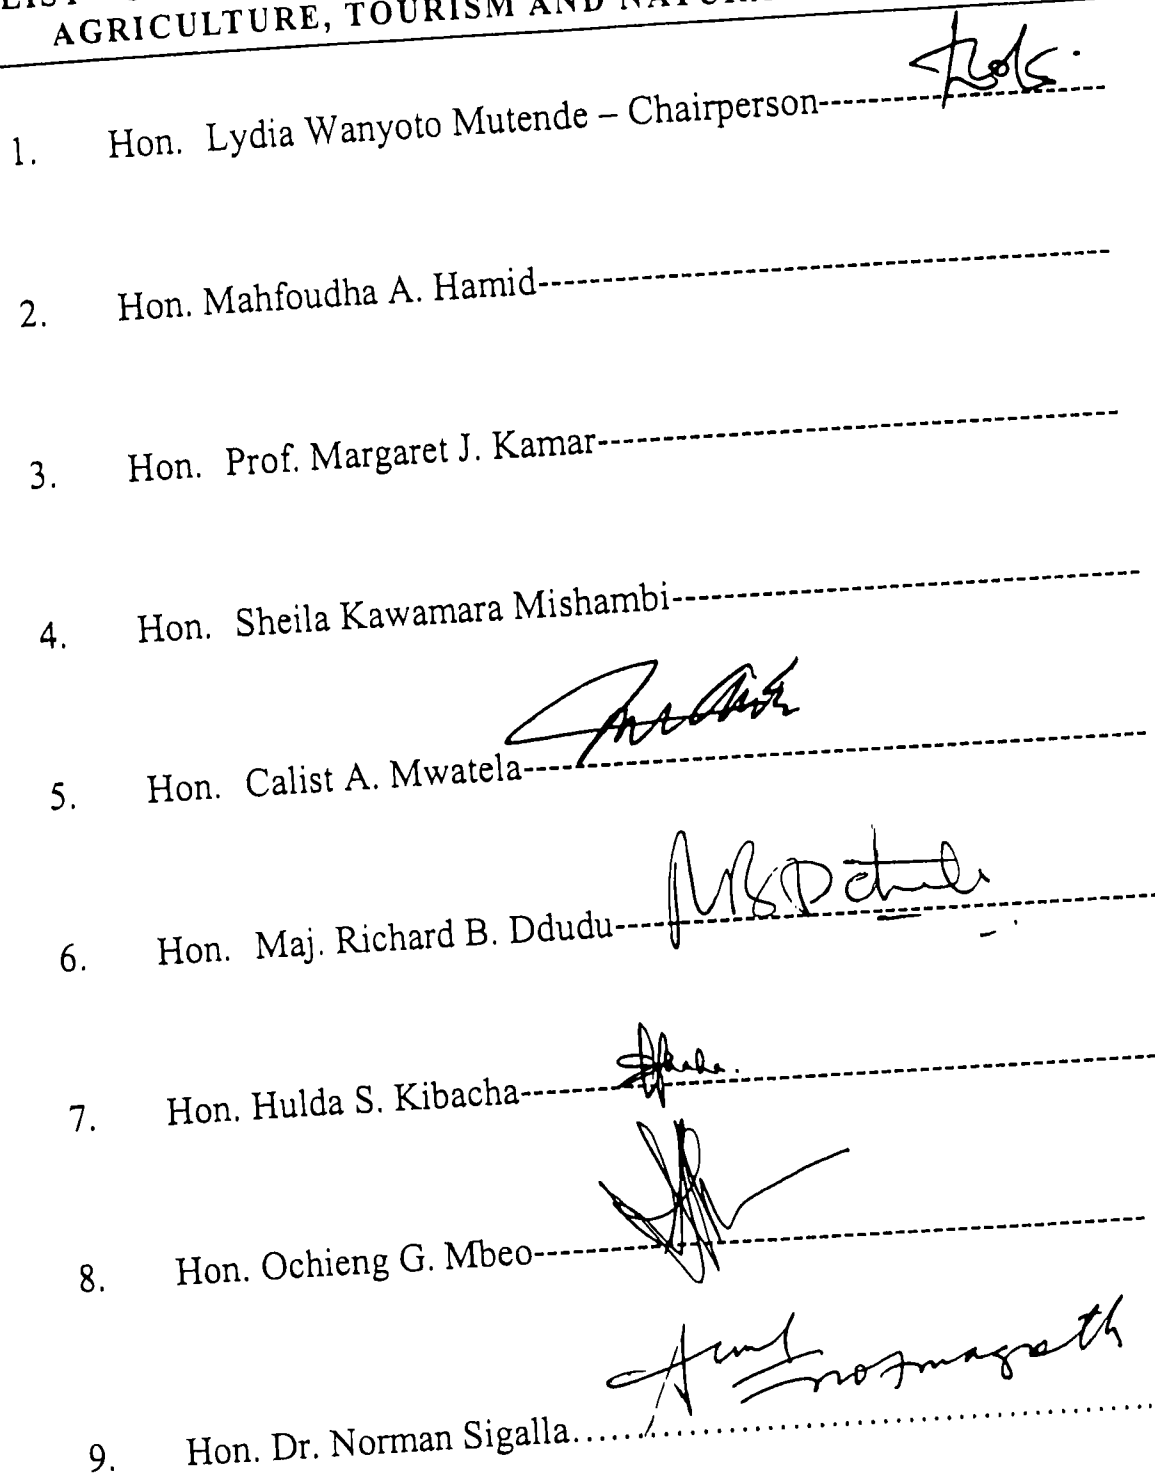 AGRICULTURE, TOURISM AND
1. Hon. Lydia Wanyoto Mutende – Chairperson
2. Hon. Mahfoudha A. Hamid
3. Hon. Prof. Margaret J. Kamar
4. Hon. Sheila Kawamara Mishambi
5. Hon. Calist A. Mwatela
6. Hon. Maj. Richard B. Ddudu
7. Hon. Hulda S. Kibacha
8. Hon. Ochieng G. Mbeo
9. Hon. Dr. Norman Sigalla